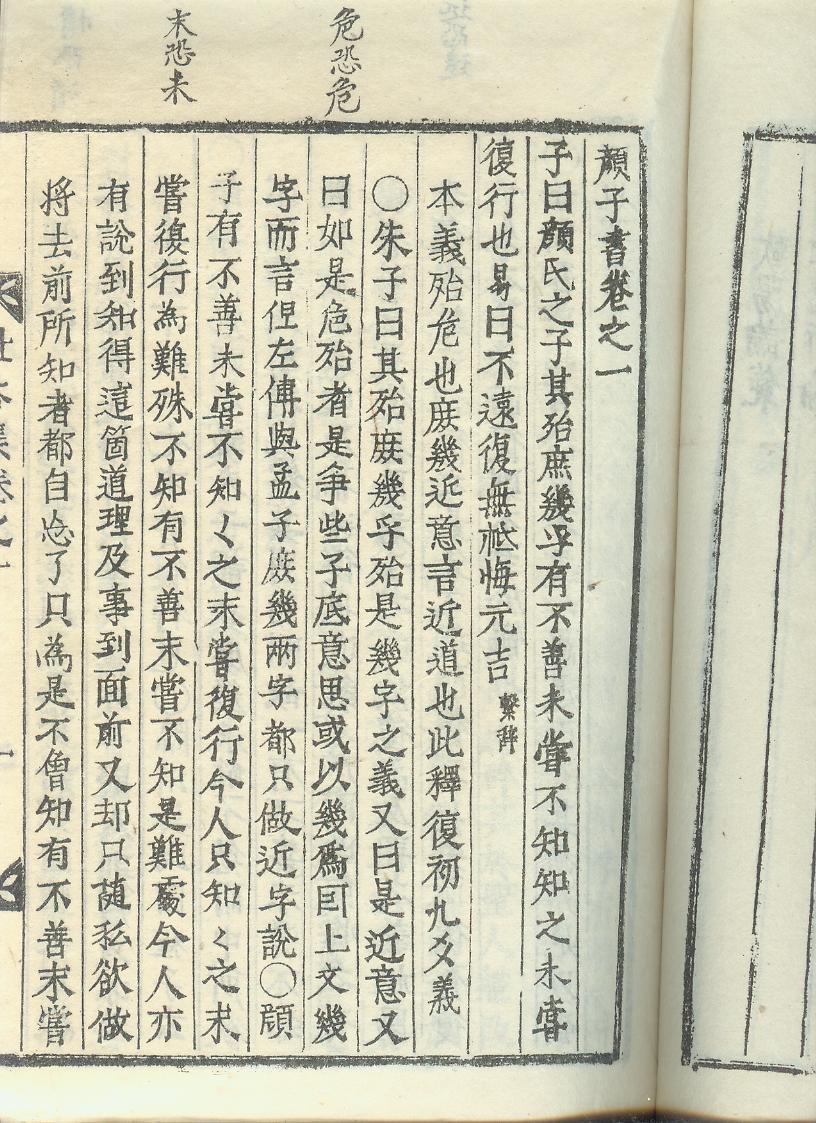 危恐危
末恐未
顔子書卷之一
子曰顔氏之子其殆庶幾乎有不善未嘗不知知之未嘗
復行也易曰不遠復無祗悔元吉繫辞
本義殆危也庻幾近意言近道也此釋復初九爻義
〇朱子曰其殆庻幾乎殆是幾字之義又曰是近意又
曰如是危殆者是争些子底意思或以幾爲因上文幾
字而言但左傳與孟子庻幾兩字都只做近字說〇顔
子有不善未嘗不知〱之末嘗復行今人只知〱之末
嘗復行為難殊不知有不善末嘗不知是難處今人亦
有說到知得這箇道理及事到面前又却只随私欲做
将去前所知者都自忘了只為是不曾知有不善末嘗